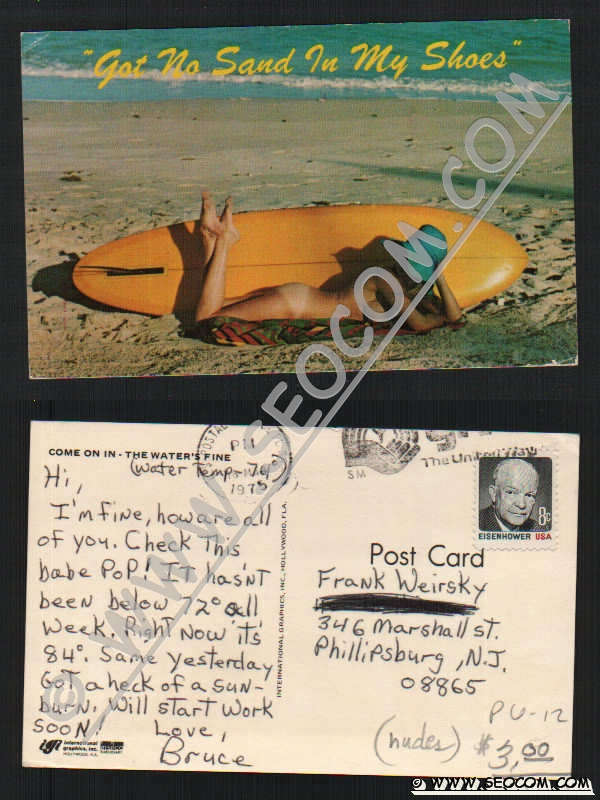 "Got No Sand In My Shoes"
© WWW.SEOCOM.COM
COME ON IN - THE WATER'S FINE
(Water Temp - 76°)
POSTAL
PM
1975
SM
The United Way
Hi,
I'm fine, how are all
of you. Check this
babe PoP! IT hasn't
been below 72° all
week. Right Now it's
84°. Same yesterday
Got a heck of a sun-
burn. Will start work
soon, Love,
Bruce
igi international graphics, inc.
HOLLYWOOD, FLA.
INTERNATIONAL GRAPHICS, INC., HOLLYWOOD, FLA.
8c
EISENHOWER USA
Post Card
Frank Weirsky
346 Marshall st.
Phillipsburg, N.J.
08865
PU-12
(nudes) $3,00
© WWW.SEOCOM.COM